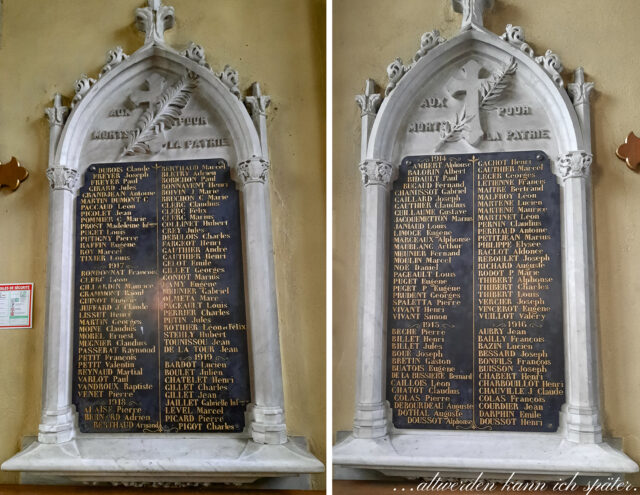 AUX
MORTS POUR
LA PATRIE
DUBOIS Claude
FREYER Joseph
FREYER Paul
GIRARD Jules
GRANDJEAN Antoine
MARTIN DUMONT C
PACCAUD Léon
PICOLET Jean
POMMIER C Marie
PROST Madeleine
PUGET Louis
PUTIGNY Pierre
RAFFIN Eugène
ROY Marcel
TIXIER Louis
1917
RONDONNAT François
CLERC Léon
GILLARDIN Maurice
GRAMMONT Raoul
GUINOT Eugène
HUFFARD J Claude
LESSUT Henri
MARTIN Georges
MOINE Claudius
MOREL Ernest
MEGNIER Claudius
PASSERAT Raymond
PETIT François
PETIT Valentin
REYNAUD Martial
VARLOT Paul
VANDROUX Baptiste
VENET Pierre
1918
ALAISE Pierre
BERNARD Adrien
BERTHAUD Armand
BERTHAUD Marcel
BERTRAND Antoine
BOUCHOY Paul
BONNAVENT Henri
BOIVIN J Marie
BRUCHON C Marie
CLERC Claudius
CLERC Félix
CLERC Marius
CORNUET Hubert
CREY Jules
DEBELOIS Charles
FARGEOT Henri
GAUTHIER André
GAUTHIER Henri
GEOT Emile
GILLET Georges
GONNOT Marius
LAMY Eugène
MEUNIER Gabriel
OLMETA Marc
PAGEAULT Louis
PERRIER Charles
PUTIN Jules
ROTHIER Léon & Félix
STEHLY Hubert
TOUNISSOU Jean
DE LA TOUR Jean
1919
BARDOT Lucien
BOULET Julien
CHATELET Henri
GILLET Charles
GILLET Jean
JAILLET Gabrielle
LEVEL Marcel
PICARD Pierre
PIGOT Charles
AUX
MORTS POUR
LA PATRIE
1914
AMBERT Alphonse
BALORIN Albert
BIDAULT Paul
BUGAUD Fernand
CHANUSSOT Gabriel
GAILLARD Joseph
GAUTHEY Claudius
GUILLAUME Gustave
JACQUEMONTON Marius
JANIAUD Louis
LIMOGE Eugène
MARCEAUX Alphonse
MERLANG Arthur
MEUNIER Fernand
MOULIN Marcel
NOE Daniel
PAGEAULT Louis
PUGET Eugène
PUGET P Eugène
PRUDENT Georges
SPALETTA Pierre
VIVANT Henri
VIVANT Simon
1915
BECHE Pierre
BILLET Henri
BILLET Jules
BOUR Joseph
BRETIN Gaston
BUATOIS Eugène
DE LA BUSSIERE Bernard
CAILLOIS Léon
CHATOT Claudius
COLAS Pierre
DEBOURDEAU Auguste
DOTHAL Auguste
DOUSSOT Alphonse
GACHOT Henri
GAUTHIER Marcel
GRAS Georges
LETIENNE Francis
LHOTE Bertrand
MALFROY Léon
MALFROY Lucien
MARTENE Maurice
MARTINET Léon
PERRIN Claudius
PERRIAUD Antoine
PETITJEAN Marius
PHILIPPE Elysée
RACLOT Aldonce
REBOULET Joseph
RICHARD Auguste
TODOT P Marie
THIBERT Alphonse
THIBERT Charles
THIBERT Louis
VERCIER Joseph
VINCEROT Emile
VUILLOT Valéry
1916
AUBRY Jean
BAILLY François
BAZIN Lucien
BESSARD Joseph
BONFILS François
BUISSON Joseph
CHABERT Henri
CHARBOUILLOT Henri
CHARVILLE J Claude
COLAS François
COURDIER Jean
DARPHIN Emile
DOUSSOT Henri
...altwerden kann ich später.